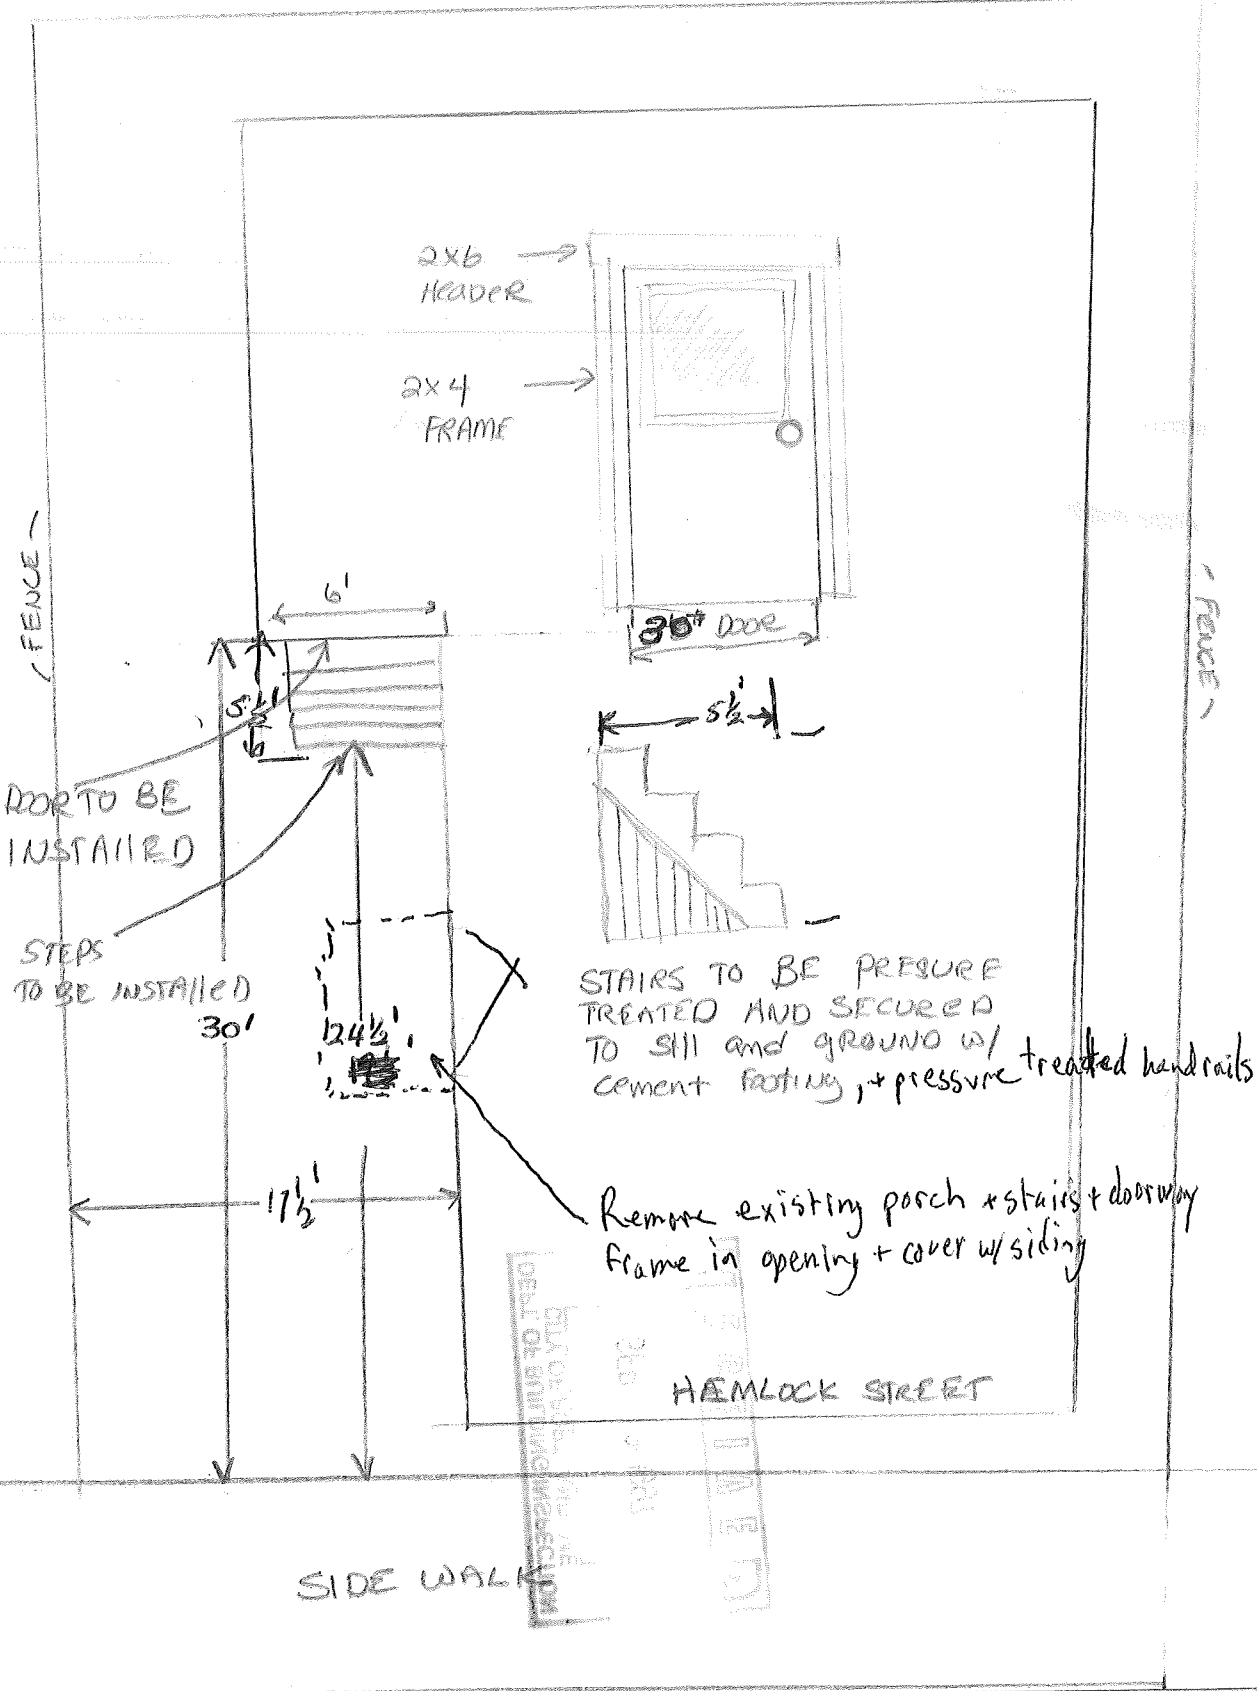 2x6
HEADER
2x4
FRAME
FENCE
FENCE
6'
DOOR
5½'
5½'
DOOR TO BE
INSTALLED
STEPS
TO BE INSTALLED
30'
24½'
STAIRS TO BE PRESURE
TREATED AND SECURED
TO SILL and GROUND W/
cement FOOTING, + pressure treated handrails
17½'
Remove existing porch + stairs + doorway
frame in opening + cover w/ siding
DEPT. OF BUILDING INSPECTION
CITY OF
RECEIVED
HÆMLOCK STREET
SIDE WALK